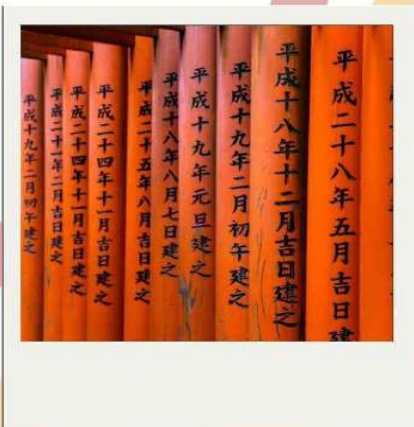 平成二十八年五月吉日建
平成十八年十二月吉日建之
平成十九年二月初午建之
平成十九年元旦建之
平成十八年八月七日建之
平成二十五年八月吉日建之
平成二十四年十一月吉日建之
平成二十四年十一月吉日建之
平成二十一年二月吉日建之
平成十九年二月初午建之